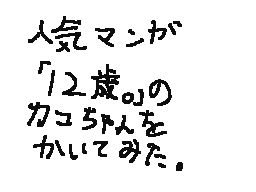 人気マンが
「12歳。」の
カコちゃんを
かいてみた。